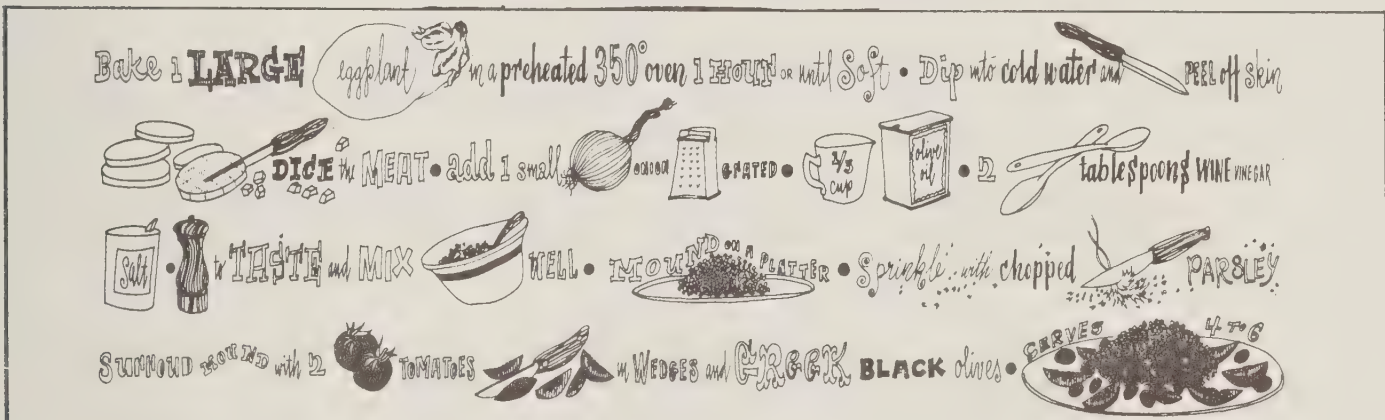 Bake 1 LARGE eggplant in a preheated 350° oven 1 HOUR OR until Soft • Dip into cold water and PEEL off skin
DICE the MEAT • add 1 small ONION GRATED • 1/3 cup olive oil • 2 tablespoons WINE VINEGAR
Salt • to TASTE and MIX WELL • MOUND ON A PLATTER • Sprinkle with chopped PARSLEY
SURROUND MOUND with 2 TOMATOES in WEDGES and GREEK BLACK olives • SERVES 4 TO 6